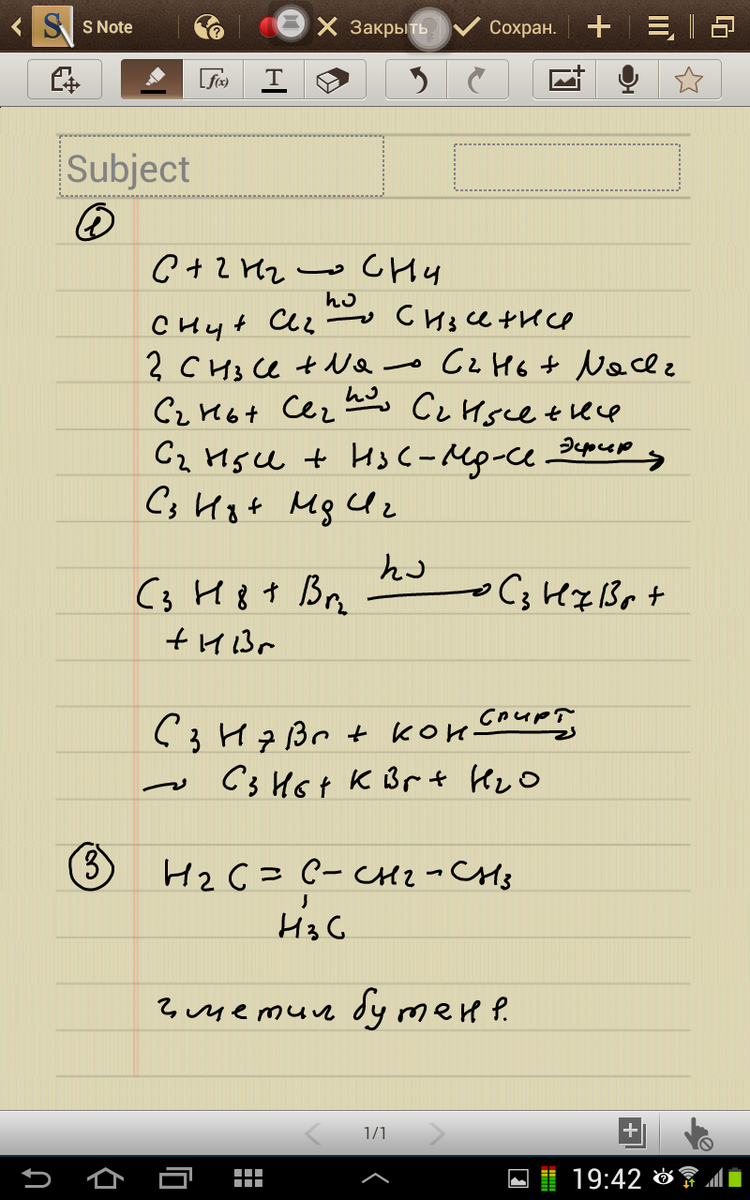 S Note
Закрыть
Сохран.
f(x)
T
Subject
1
C + 2H2 → CH4
CH4 + Cl2 hν→ CH3Cl + HCl
2 CH3Cl + Na → C2H6 + NaCl2
C2H6 + Cl2 hν→ C2H5Cl + HCl
C2H5Cl + H3C-Mg-Cl эфир→
C3H8 + MgCl2
C3H8 + Br2 hν→ C3H7Br +
+ HBr
C3H7Br + KOH спирт→
→ C3H6 + KBr + H2O
3 H2C = C - CH2 - CH3
H3C
2 метил бутен 1.
1/1
19:42